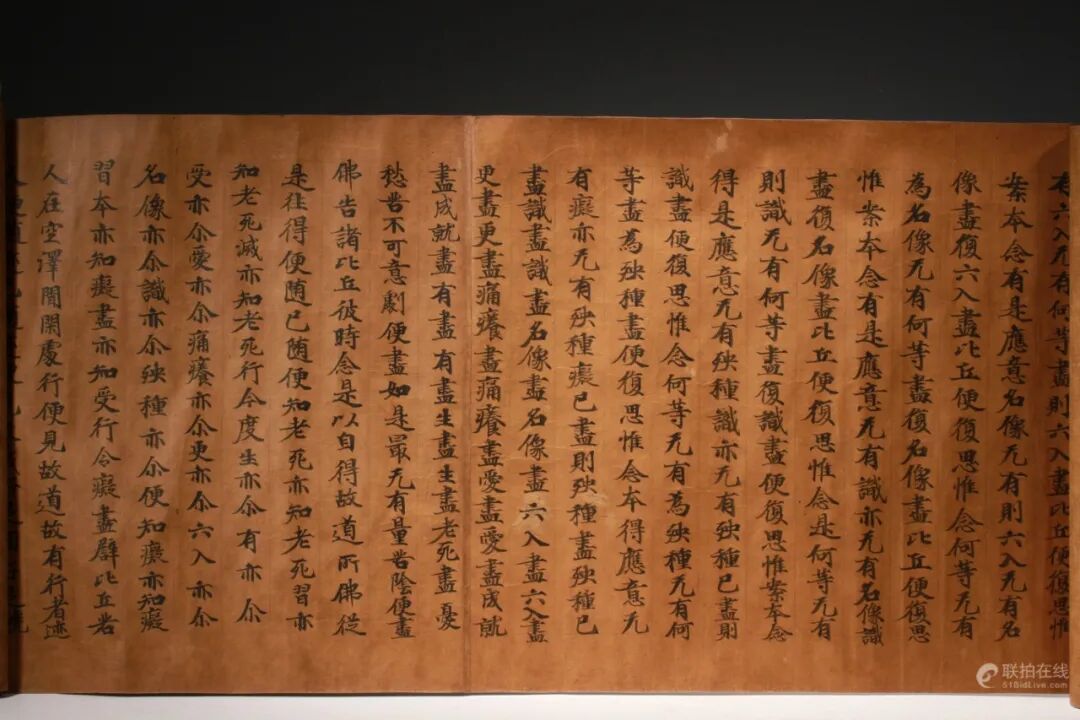 有六入无有何等盡則六入盡比丘便復思惟
案本念有是應意名像无有則六入无有名
像盡復六入盡比丘便復思惟念何等无有
為名像无有何等盡復名像盡比丘便復思
惟案本念有是應意无有識亦无有名像識
盡復名像盡比丘便復思惟念是何等无有
則識无有何等盡復識盡便復思惟案本念
得是應意无有殃種識亦无有殃種已盡則
識盡便復思惟念何等无有為殃種无有何
等盡為殃種盡便復思惟念本得應意无
有癡亦无有殃種癡已盡則殃種盡殃種已
盡識盡識盡名像盡名像盡六入盡六入盡
更盡更盡痛癢盡痛癢盡愛盡愛盡成就
盡成就盡有盡有盡生盡生盡老死盡憂
愁苦不可意劇便盡如是最无有量苦陰便盡
佛告諸比丘彼時念是以自得故道所佛從
是往得便随已随便知老死亦知老死習亦
知老死滅亦知老死行令度生亦尒有亦尒
受亦尒愛亦尒痛癢亦尒更亦尒六入亦尒
名像亦尒識亦尒殃種亦尒便知癡亦知癡
習本亦知癡盡亦知受行令癡盡辟比丘若
人在空澤閒閑處行便見故道故有行者迹
联拍在线
51BidLive.com